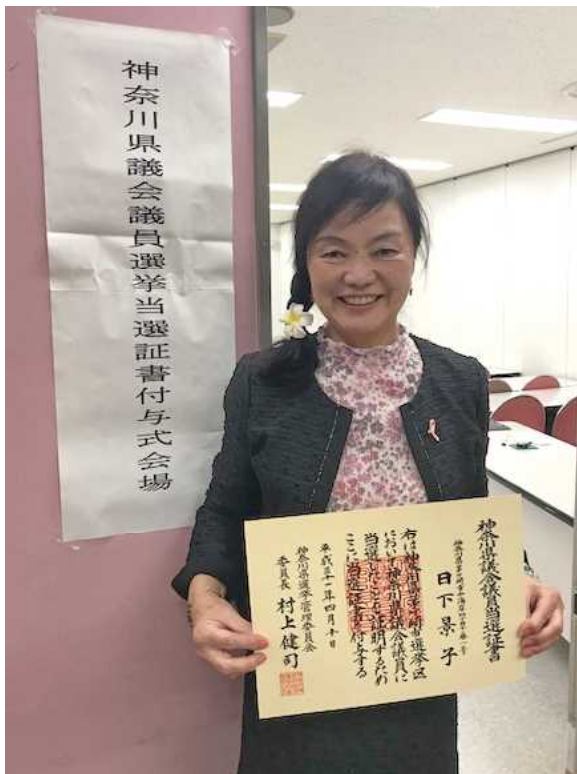 神奈川県議会議員選挙当選証書付与式会場
神奈川県議会議員当選証書
日下景子
右は神奈川県茅ヶ崎市選挙区
において神奈川県議会議員に
当選したことを証明するため
ここに当選証書を付与する
平成三十一年四月十日
神奈川県選挙管理委員会
委員長 村上健司